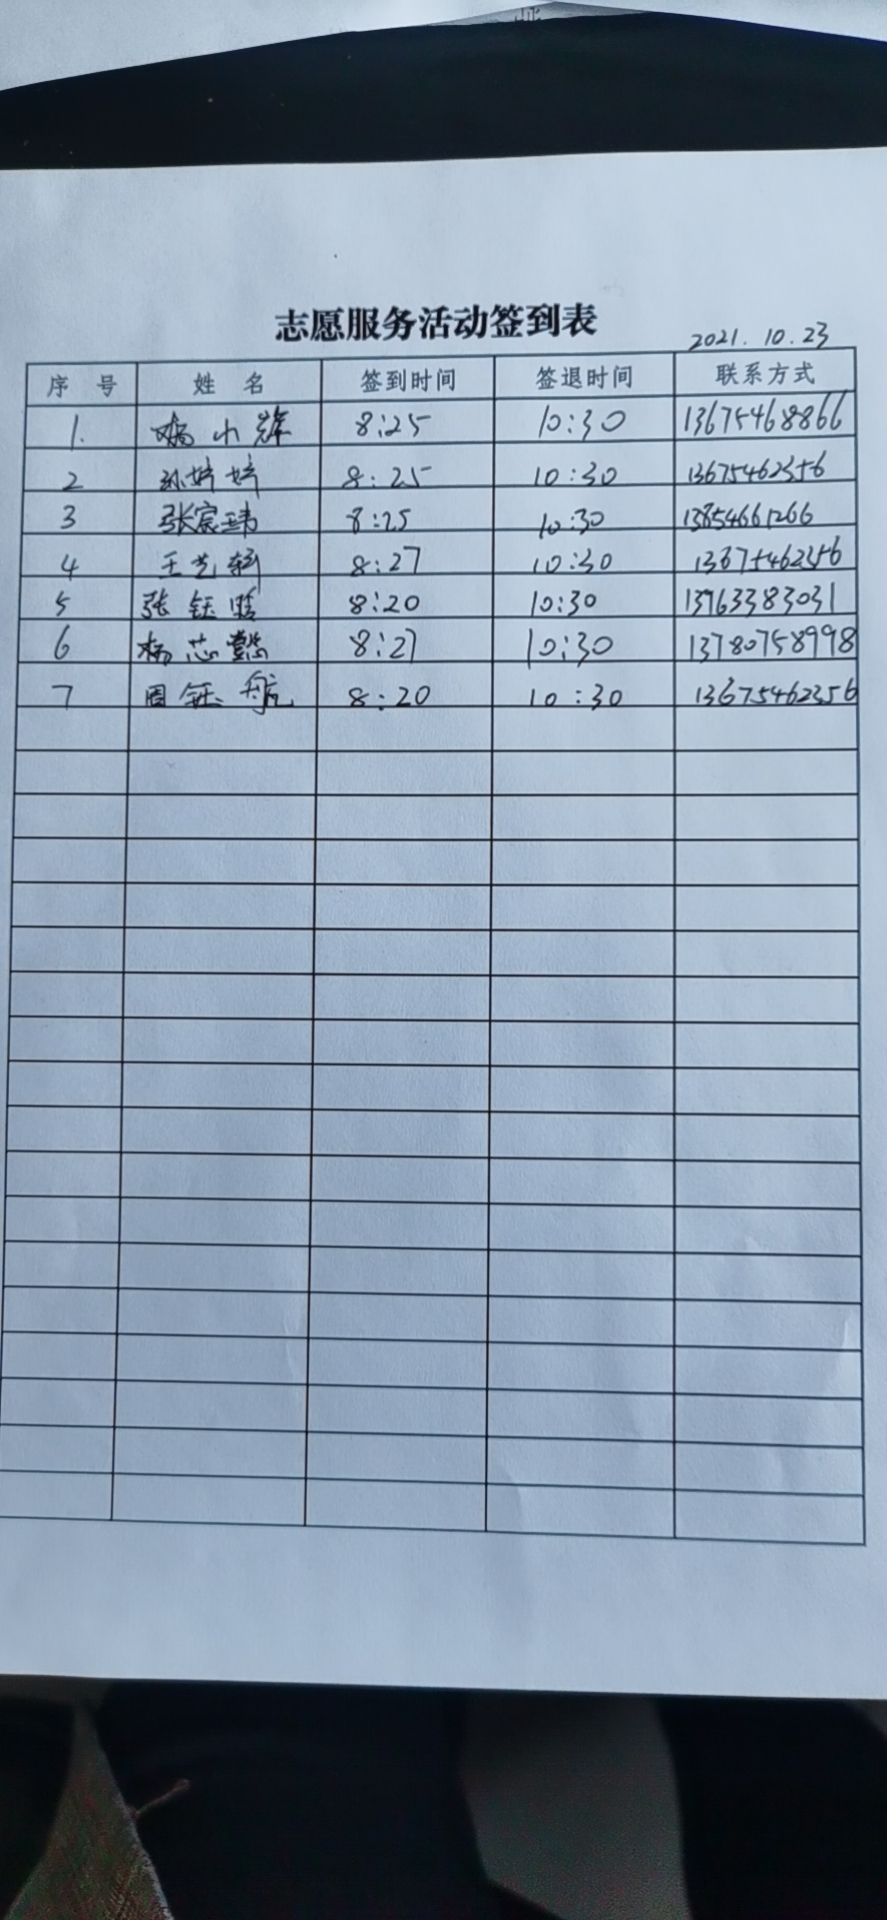 志愿服务活动签到表
2021.10.23
序号 姓名 签到时间 签退时间 联系方式
1. 小辉 8:25 10:30 13675468866
2 孙婷婷 8:25 10:30 13675462356
3 张宸玮 8:25 10:30 13854661266
4 王艺 8:27 10:30
5 张钰 8:20 10:30 13963383031
6 杨芯懿 8:27 10:30 13780758998
7 周钰航 8:20 10:30 13675462356